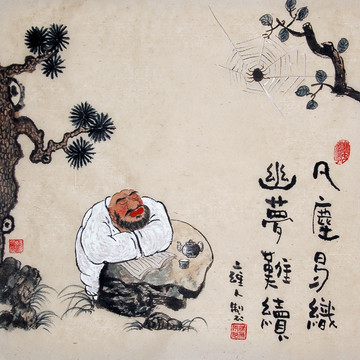 凡塵易織
幽夢難續